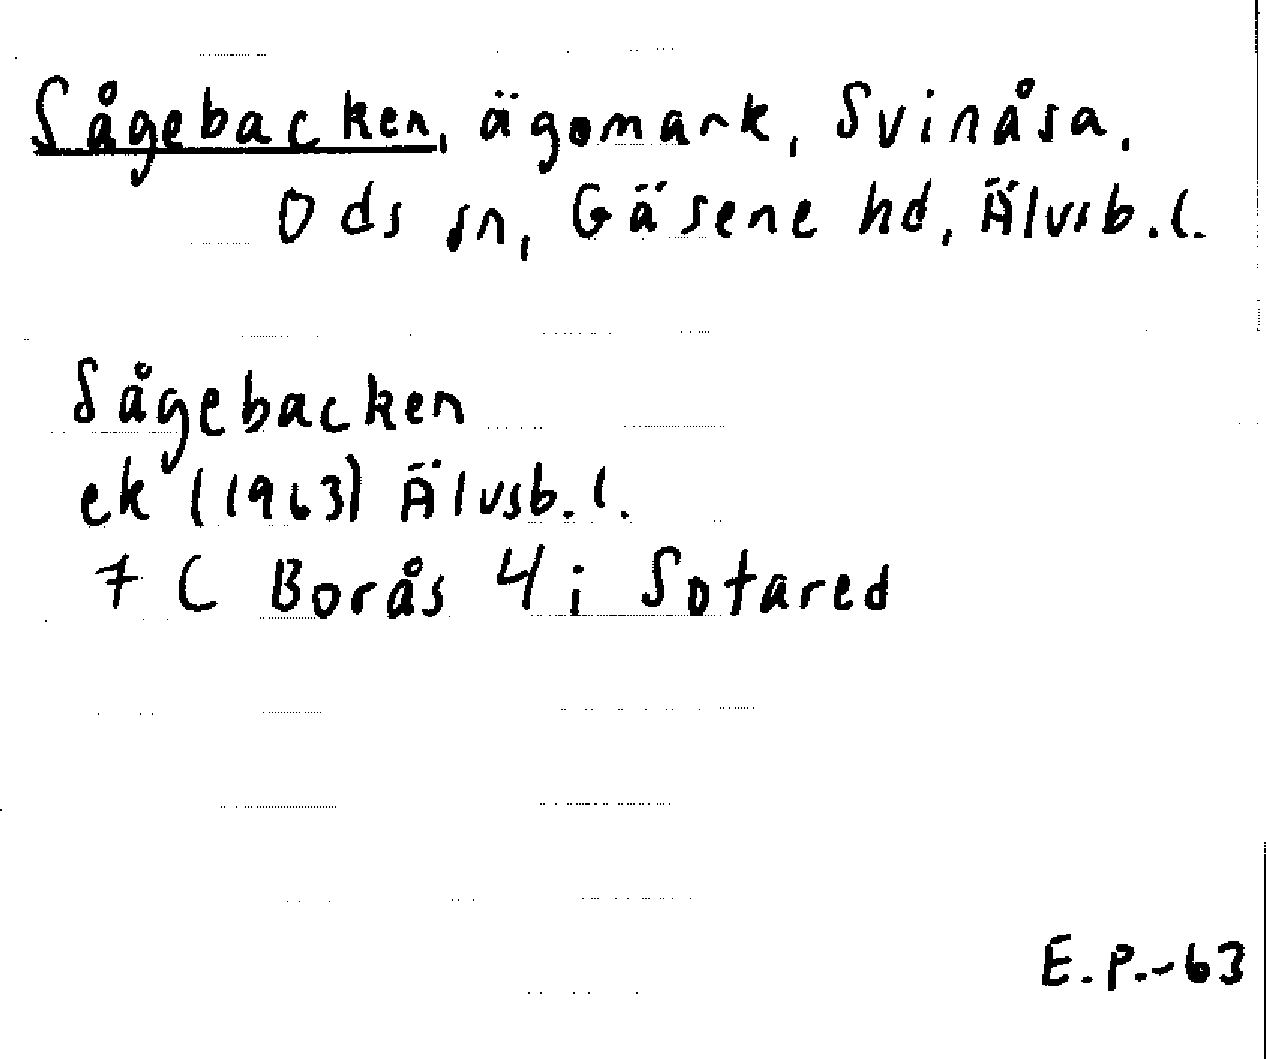 Sågebacken, ägomark, Svinåsa,
Ods sn, Gäsene hd, Älvsb.l.
Sågebacken
ek (1963) Älvsb.l.
7 C Borås 4 i Sotared
E.P.-63